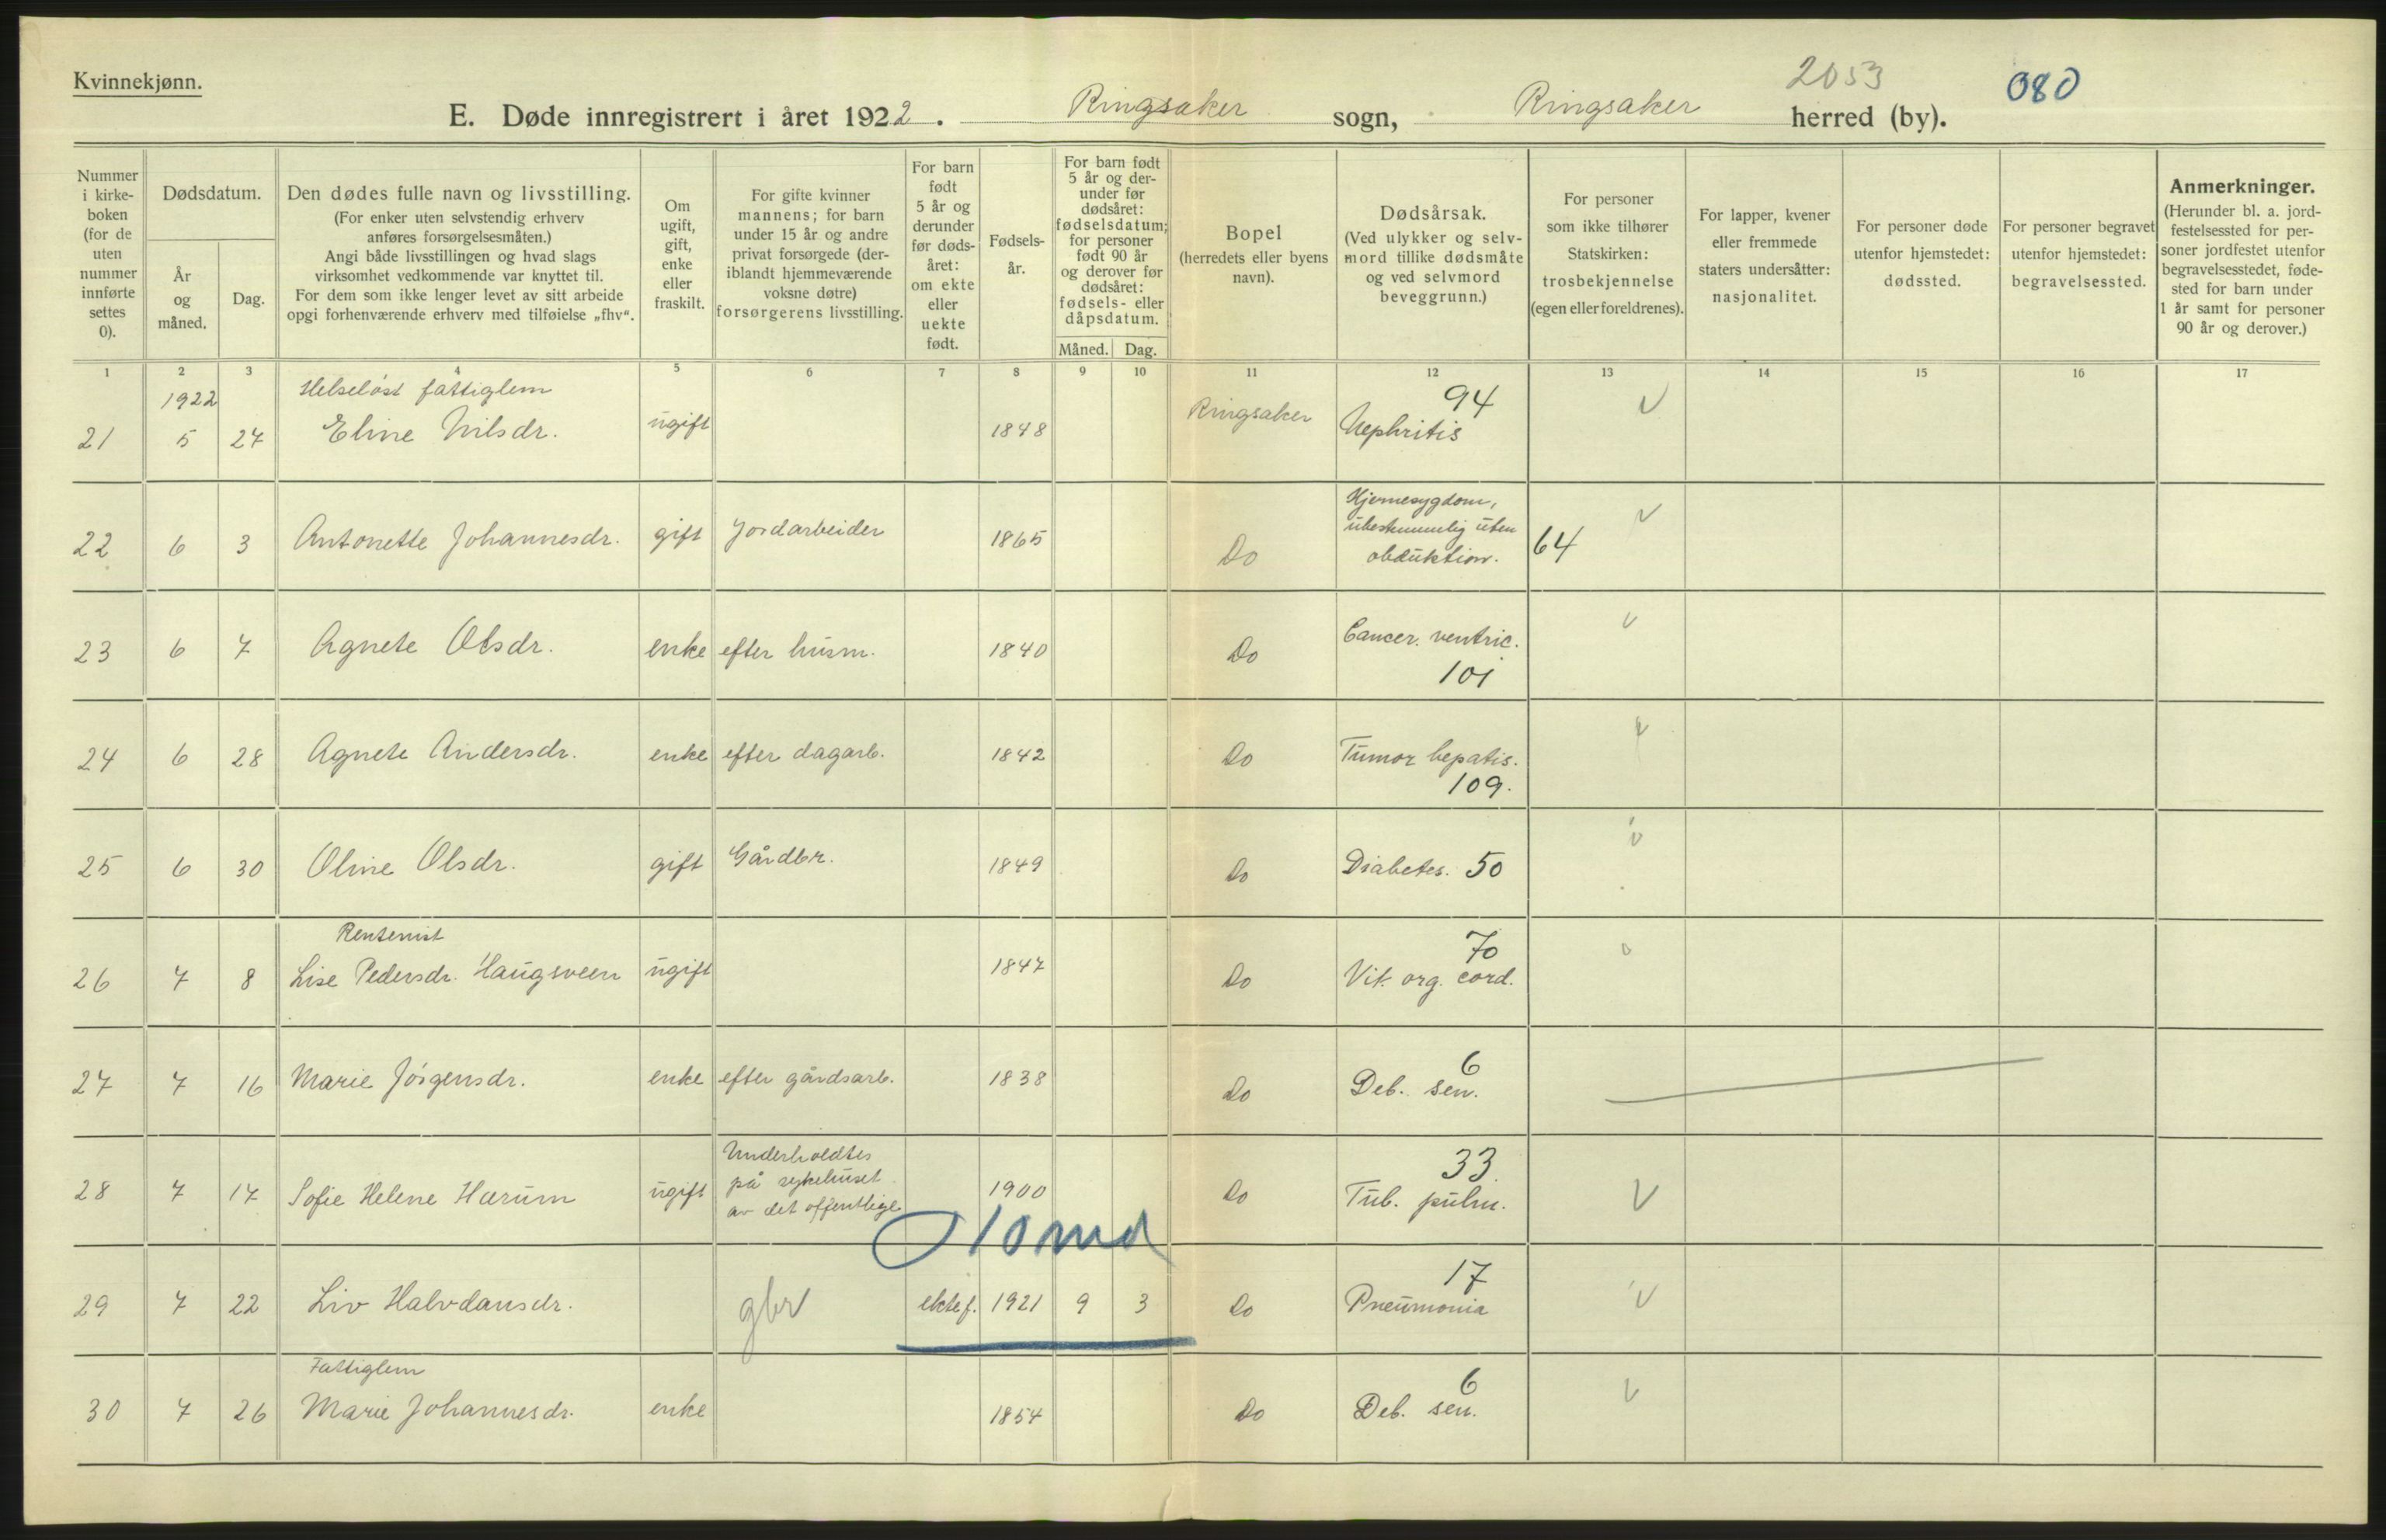 Kvinnekjønn.
2053
080
E. Døde innregistrert i året 1922. Ringsaker sogn, Ringsaker herred (by).
Nummer i kirke- boken (for de uten nummer innførte settes 0).
Dødsdatum.
År og måned.
Dag.
Den dødes fulle navn og livsstilling.
(For enker uten selvstendig erhverv
anføres forsørgelsesmåten.)
Angi både livsstillingen og hvad slags
virksomhet vedkommende var knyttet til.
For dem som ikke lenger levet av sitt arbeide
opgi forhenværende erhverv med tilføielse „fhv“.
Om ugift, gift, enke eller fraskilt.
For gifte kvinner
mannens; for barn
under 15 år og andre
privat forsørgede (der-
iblandt hjemmeværende
voksne døtre)
forsørgerens livsstilling.
For barn født 5 år og derunder før døds- året: om ekte eller uekte født.
Fødsels- år.
For barn født
5 år og der-
under før
dødsåret:
fødselsdatum;
for personer
født 90 år
og derover før
dødsåret:
fødsels- eller
dåpsdatum.
Måned. Dag.
Bopel
(herredets eller byens
navn).
Dødsårsak.
(Ved ulykker og selv-
mord tillike dødsmåte
og ved selvmord
beveggrunn.)
For personer
som ikke tilhører
Statskirken:
trosbekjennelse
(egen eller foreldrenes).
For lapper, kvener
eller fremmede
staters undersåtter:
nasjonalitet.
For personer døde
utenfor hjemstedet:
dødssted.
For personer begravet
utenfor hjemstedet:
begravelsessted.
Anmerkninger.
(Herunder bl. a. jord-
festelsessted for per-
soner jordfestet utenfor
begravelsesstedet, føde-
sted for barn under
1 år samt for personer
90 år og derover.)
1 2 3 4 5 6 7 8 9 10 11 12 13 14 15 16 17
1922 Helseløst fattiglem 94
21 5 27 Eline Nilsdr. ugift 1848 Ringsaker Nephritis v
22 6 3 Antonette Johannesdr. gift Jordarbeider 1865 Do Hjernesygdom,
ubestemmelig uten
obduktion. 64 v
23 6 7 Agnete Olsdr. enke efter husm. 1840 Do Cancer. ventric. v
101
24 6 28 Agnete Andersdr. enke efter dagarb. 1842 Do Tumor hepatis. v
109.
25 6 30 Oline Olsdr. gift Gårdbr. 1849 Do Diabetes. 50 v
Rentenist 70
26 7 8 Lise Pedersdr. Haugsveen ugift 1847 Do Vit. org. cord. v
6
27 7 16 Marie Jörgensdr. enke efter gårdsarb. 1838 Do Deb. sen.
Underholdtes
på sykehuset
av det offentlige 33
28 7 17 Sofie Helene Hærum ugift 1900 Do Tub. pulm. v
10 md
17
29 7 22 Liv Halvdansdr. gbr ektef. 1921 9 3 Do Pneumonia v
Fattiglem 6
30 7 26 Marie Johannesdr. enke 1854 Do Deb. sen. v